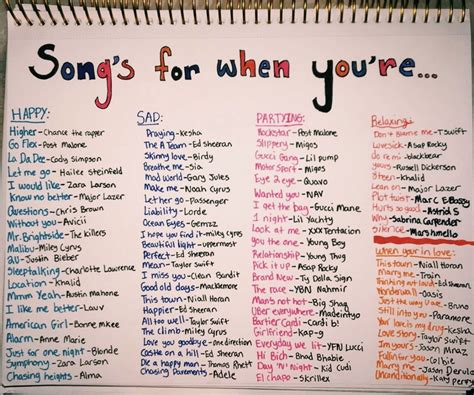 Song's for when you're...
HAPPY:
Higher-Chance the rapper
Go Flex-Post Malone
La Da Dee-Cody Simpson
Let me go-Hailee Steinfeld
I would like-Zara Larson
Know no better-Major Lazer
Questions-Chris Brown
Without you-Avicii
Mr. Brightside-The killers
Malibu-Miley Cyrus
2U-Justin Bieber
Sleeptalking-Charlotte Lawrence
Location-Khalid
Mmm Yeah-Austin Mahone
I like me better-Lauv
American Girl-Bonnie Mckee
Alarm-Anne Marie
Just for one night-Blonde
Symphony-Zara Larson
Chasing heights-Alma
SAD:
Praying-Kesha
The A Team-Ed Sheeran
Skinny love-Birdy
Breathe me-Sia
Mad world-Gary Jules
Make me-Noah Cyrus
Let her go-Passenger
Liability-Lorde
Ocean Eyes-
I hope you find it-miley cyrus
Beautiful light-uppermost
Perfect-Ed Sheeran
Mean-Taylor Swift
I miss you-Clean Bandit
Good old days-Macklemore
This town-Niall Horan
Happier-Ed Sheeran
All too well-Taylor Swift
The climb-Miley Cyrus
Love you goodbye-One direction
Castle on a hill-Ed Sheeran
Die a happy man-Thomas Rhett
Chasing Pavements-Adele
PARTYING:
Rockstar-Post Malone
Slippery-Migos
Gucci Gang-Lil pump
Motor Sport-Migos
Eye 2 eye-Quavo
Wanted you-NAV
I get the bag-Gucci Mane
1 night-Lil Yachty
Look at me-XXXTentacion
You the one-Young Boy
Relationship-Young Thug
Pick it up-Asap Rocky
Brand New-Ty Dolla Sign
The race-YBN Nahmir
Man's not hot-Big Shaq
Uber everywhere-Madeintyo
Bartier Cardi-Cardi b
Girlfriend-Kap-g
Everyday we lit-YFN Lucci
Hi Bich-Bhad Bhabie
Day 'N' Night-Kid Cudi
El chapo-Skrillex
Relaxing:
Don't Blame me-T.Swift
Lovesick-Asap Rocky
do re mi-blackbear
yours-Russell Dickerson
Steen-Khalid
Lean on-Major Lazer
Plot twist-Marc E Bassy
Hurts so good-Astrid S
Why-Sabrina Carpenter
Silence-Marshmello
When your in love:
This town-Niall Horan
Marry me-Train
Thinking out loud-Ed Sheeran
Wonderwall-Oasis
Just the way u are-Bruno
Still into you-Paramore
Your love is my drug-kesha
Love story-Taylor Swift
Im yours-Jason Mraz
Fallin for you-Colbie
Marry me-Jason Derulo
Unconditionally-Katy Perry